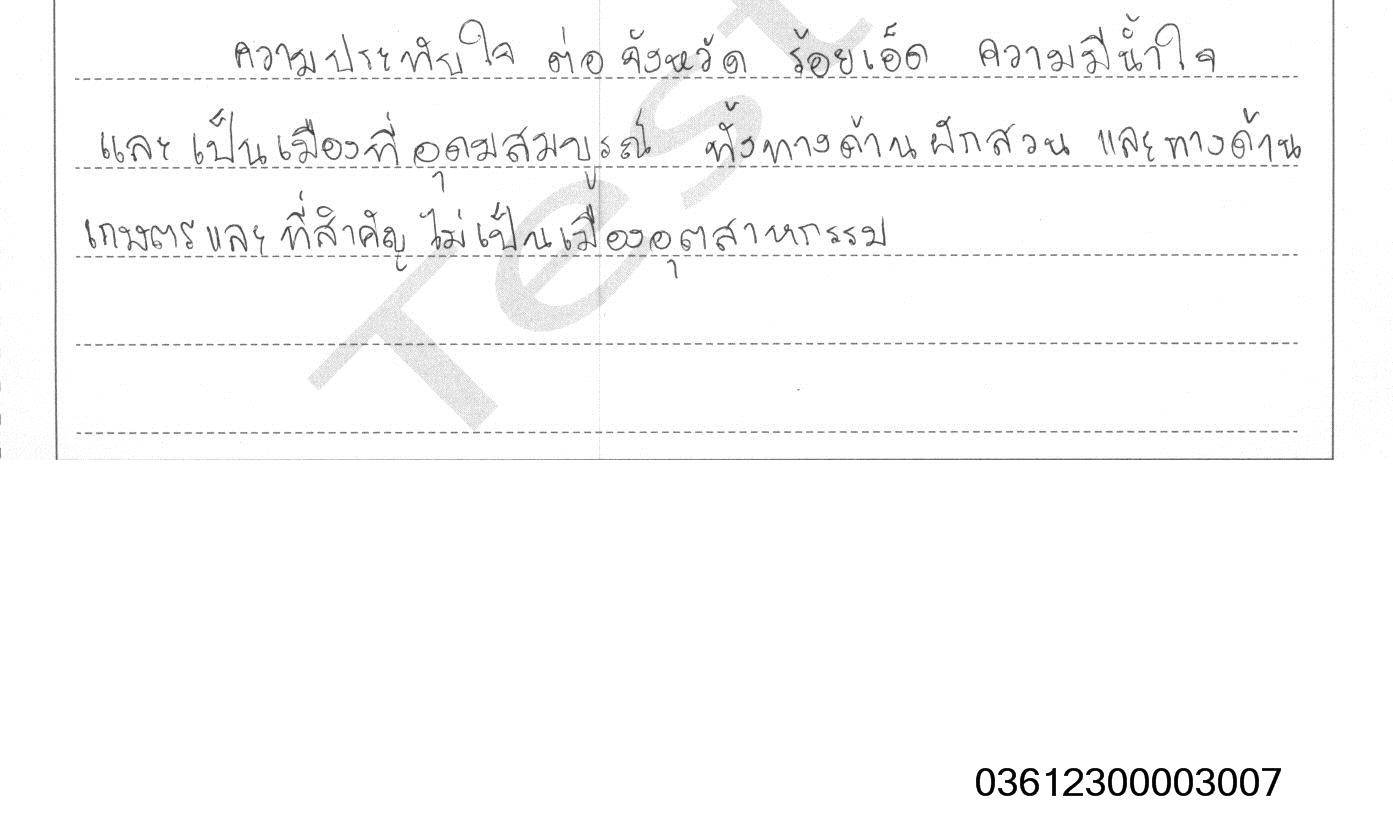 ความประทับใจ ต่อ จังหวัด ร้อยเอ็ด ความมีน้ำใจ
และ เป็นเมืองที่ อุดมสมบูรณ์ ทั้งทางด้าน ผักสวน และทางด้าน
เกษตร และ ที่สำคัญ ไม่เป็นเมืองอุตสาหกรรม
Test
03612300003007